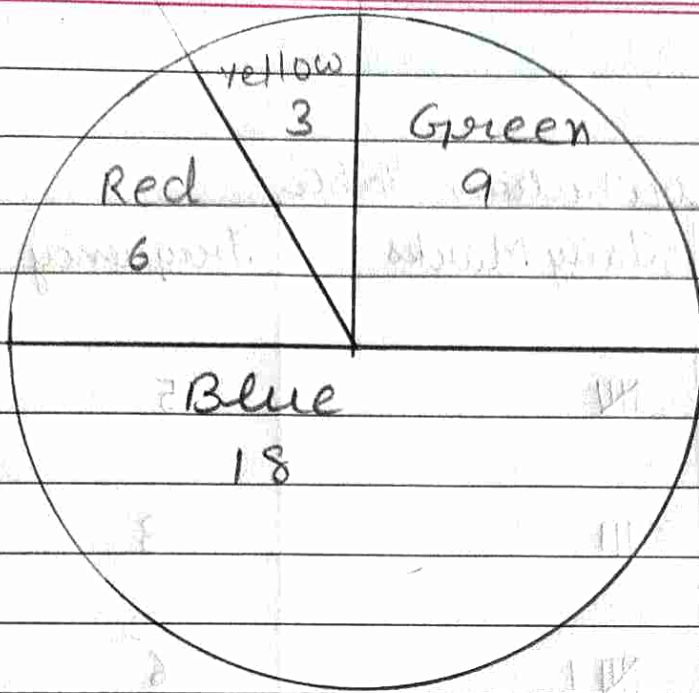 Yellow
3
Green
9
Red
6
Blue
18